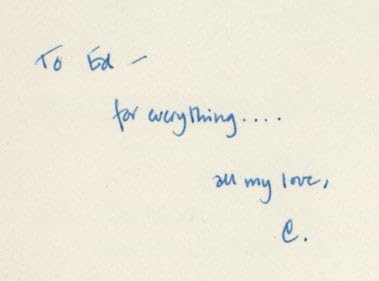 To Ed –
for everything....
all my love,
C.